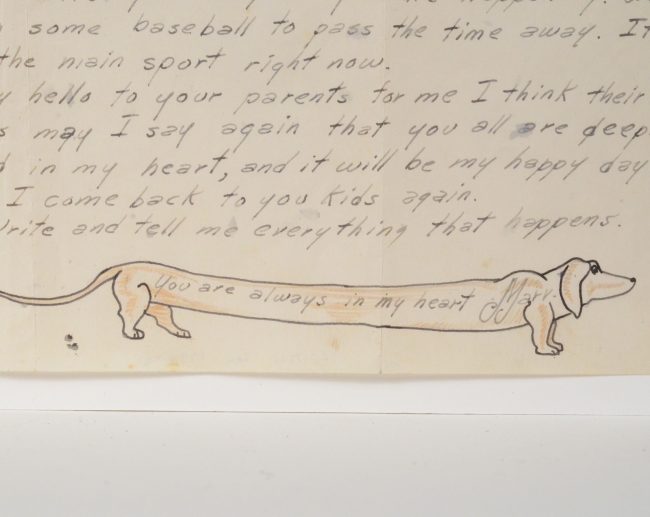 some baseball to pass the time away. It
the main sport right now.
hello to your parents for me I think their
may I say again that you all are deep
in my heart, and it will be my happy day
I come back to you kids again.
Write and tell me everything that happens.
You are always in my heart Marv.